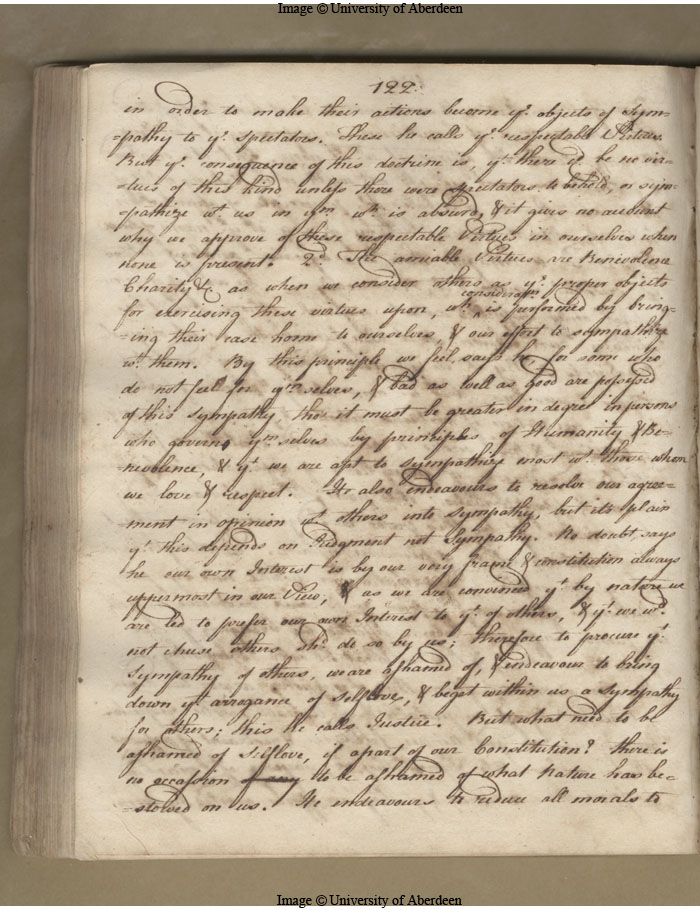 Image © University of Aberdeen
122.
in order to make their actions become ye. objects of Sym-
-pathy to ye. spectators. These he calls ye. respectable Virtues.
But ye. consequence of this doctrine is, yt. there wd. be no vir-
-tues of this kind unless there were spectators to behold, or sym-
-pathize wt. us in ym. wh. is absurd, & it gives no account
why we approve of these respectable Virtues in ourselves when
none is present. 2d. The amiable Virtues are Benevolence
Charity &c as when we consider others as ye. proper objects
for exercising these virtues upon, wh. considerat:n is performed by bring-
-ing their case home to ourselves, & our effort to sympathize
wt. them. By this principle, we feel, says he, for some who
do not feel for ym. selves, & bad as well as good are possessed
of this sympathy tho' it must be greater in degree in persons
who govern ym. selves by principles of Humanity & Be-
-nevolence, & yt. we are apt to sympathize most wt. those whom
we love & respect. He also endeavours to resolve our agree-
ment in opinion wt. others into Sympathy, but its plain
yt. this depends on Judgment not Sympathy. No doubt, says
he our own Interest is by our very frame & constitution always
uppermost in our View, & as we are convinced yt. by nature we
are led to prefer our own Interest to yt. of others, & yt. we wd.
not chuse others shd. do so by us; therefore to procure ye.
Sympathy of others, we are ashamed of, & endeavour to bring
down yt. arrogance of selflove, & beget within us a Sympathy
for others; this he calls Justice. But what need to be
ashamed of selflove, if a part of our Constitution? there is
no occasion to be ashamed of what Nature has be-
-stowed on us. He endeavours to reduce all morals to
Image © University of Aberdeen